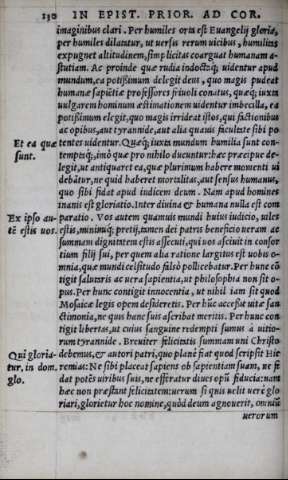 130 IN EPIST. PRIOR. AD COR.
imaginibus clari. Per humiles oris est Euangelij gloria,
per humiles dilatur, ut uersis rerum uicibus, humilitas
expugnet altitudinem, simplicitas coarguat humanam a-
stutiam. Ac proinde quæ rudia indoctaq; uidentur apud
mundum, ea potissimum delegit deus, quo magis pudeat
humanæ sapiẽtiæ professores friuoli conatus, quæq; iuxta
uulgarem hominum æstimationem uidentur imbecilla, ea
potissimum elegit, quo magis irrideat istos, qui factionibus
ac opibus, aut tyrannide, aut alia quauis facultate sibi po
Et ea quæ sunt.
tentes uidentur. Quæq; iuxta mundum humilia sunt con-
temptaq;, imò quæ pro nihilo ducuntur: hæc præcipue de-
legit, ut antiquaret ea, quæ plurimum habere momenti ui
debãtur, ne quid haberet mortalitas, aut sensus humanus,
quo sibi fidat apud iudicem deum. Nam apud homines
inanis est gloriatio. Inter diuina & humana nulla est com
Ex ipso autẽ estis uos.
paratio. Vos autem quamuis mundi huius iudicio, uiles
estis, minimiq; pretij, tamen dei patris beneficio ueram ac
summam dignitatem estis assecuti, qui uos asciuit in consor
tium filij sui, per quem alia ratione largitus est uobis o-
mnia, quæ mundi celsitudo falsò pollicebatur. Per hunc cõ
tigit salutaris ac uera sapientia, ut philosophia non sit o-
pus. Per hunc contigit innocentia, ut nihil iam sit quod
Mosaicæ legis opem desideretis. Per hũc accessit uitæ san
ctimonia, ne quis hanc suis ascribat meritis. Per hunc con
tigit libertas, ut cuius sanguine redempti sumus à uitio-
rum tyrannide. Breuiter felicitatis summam uni Christo
Qui gloriatur, in dom. glo.
debemus, & autori patri, quo planè fiat quod scripsit Hie
remias: Ne sibi placeat sapiens ob sapientiam suam, ne fi
dat potẽs uiribus suis, ne efferatur diues opũ fiducia: nam
hæc non præstant felicitatem: uerum si quis uelit uerè glo
riari, glorietur hoc nomine, quòd deum agnouerit, omniũ
uerorum